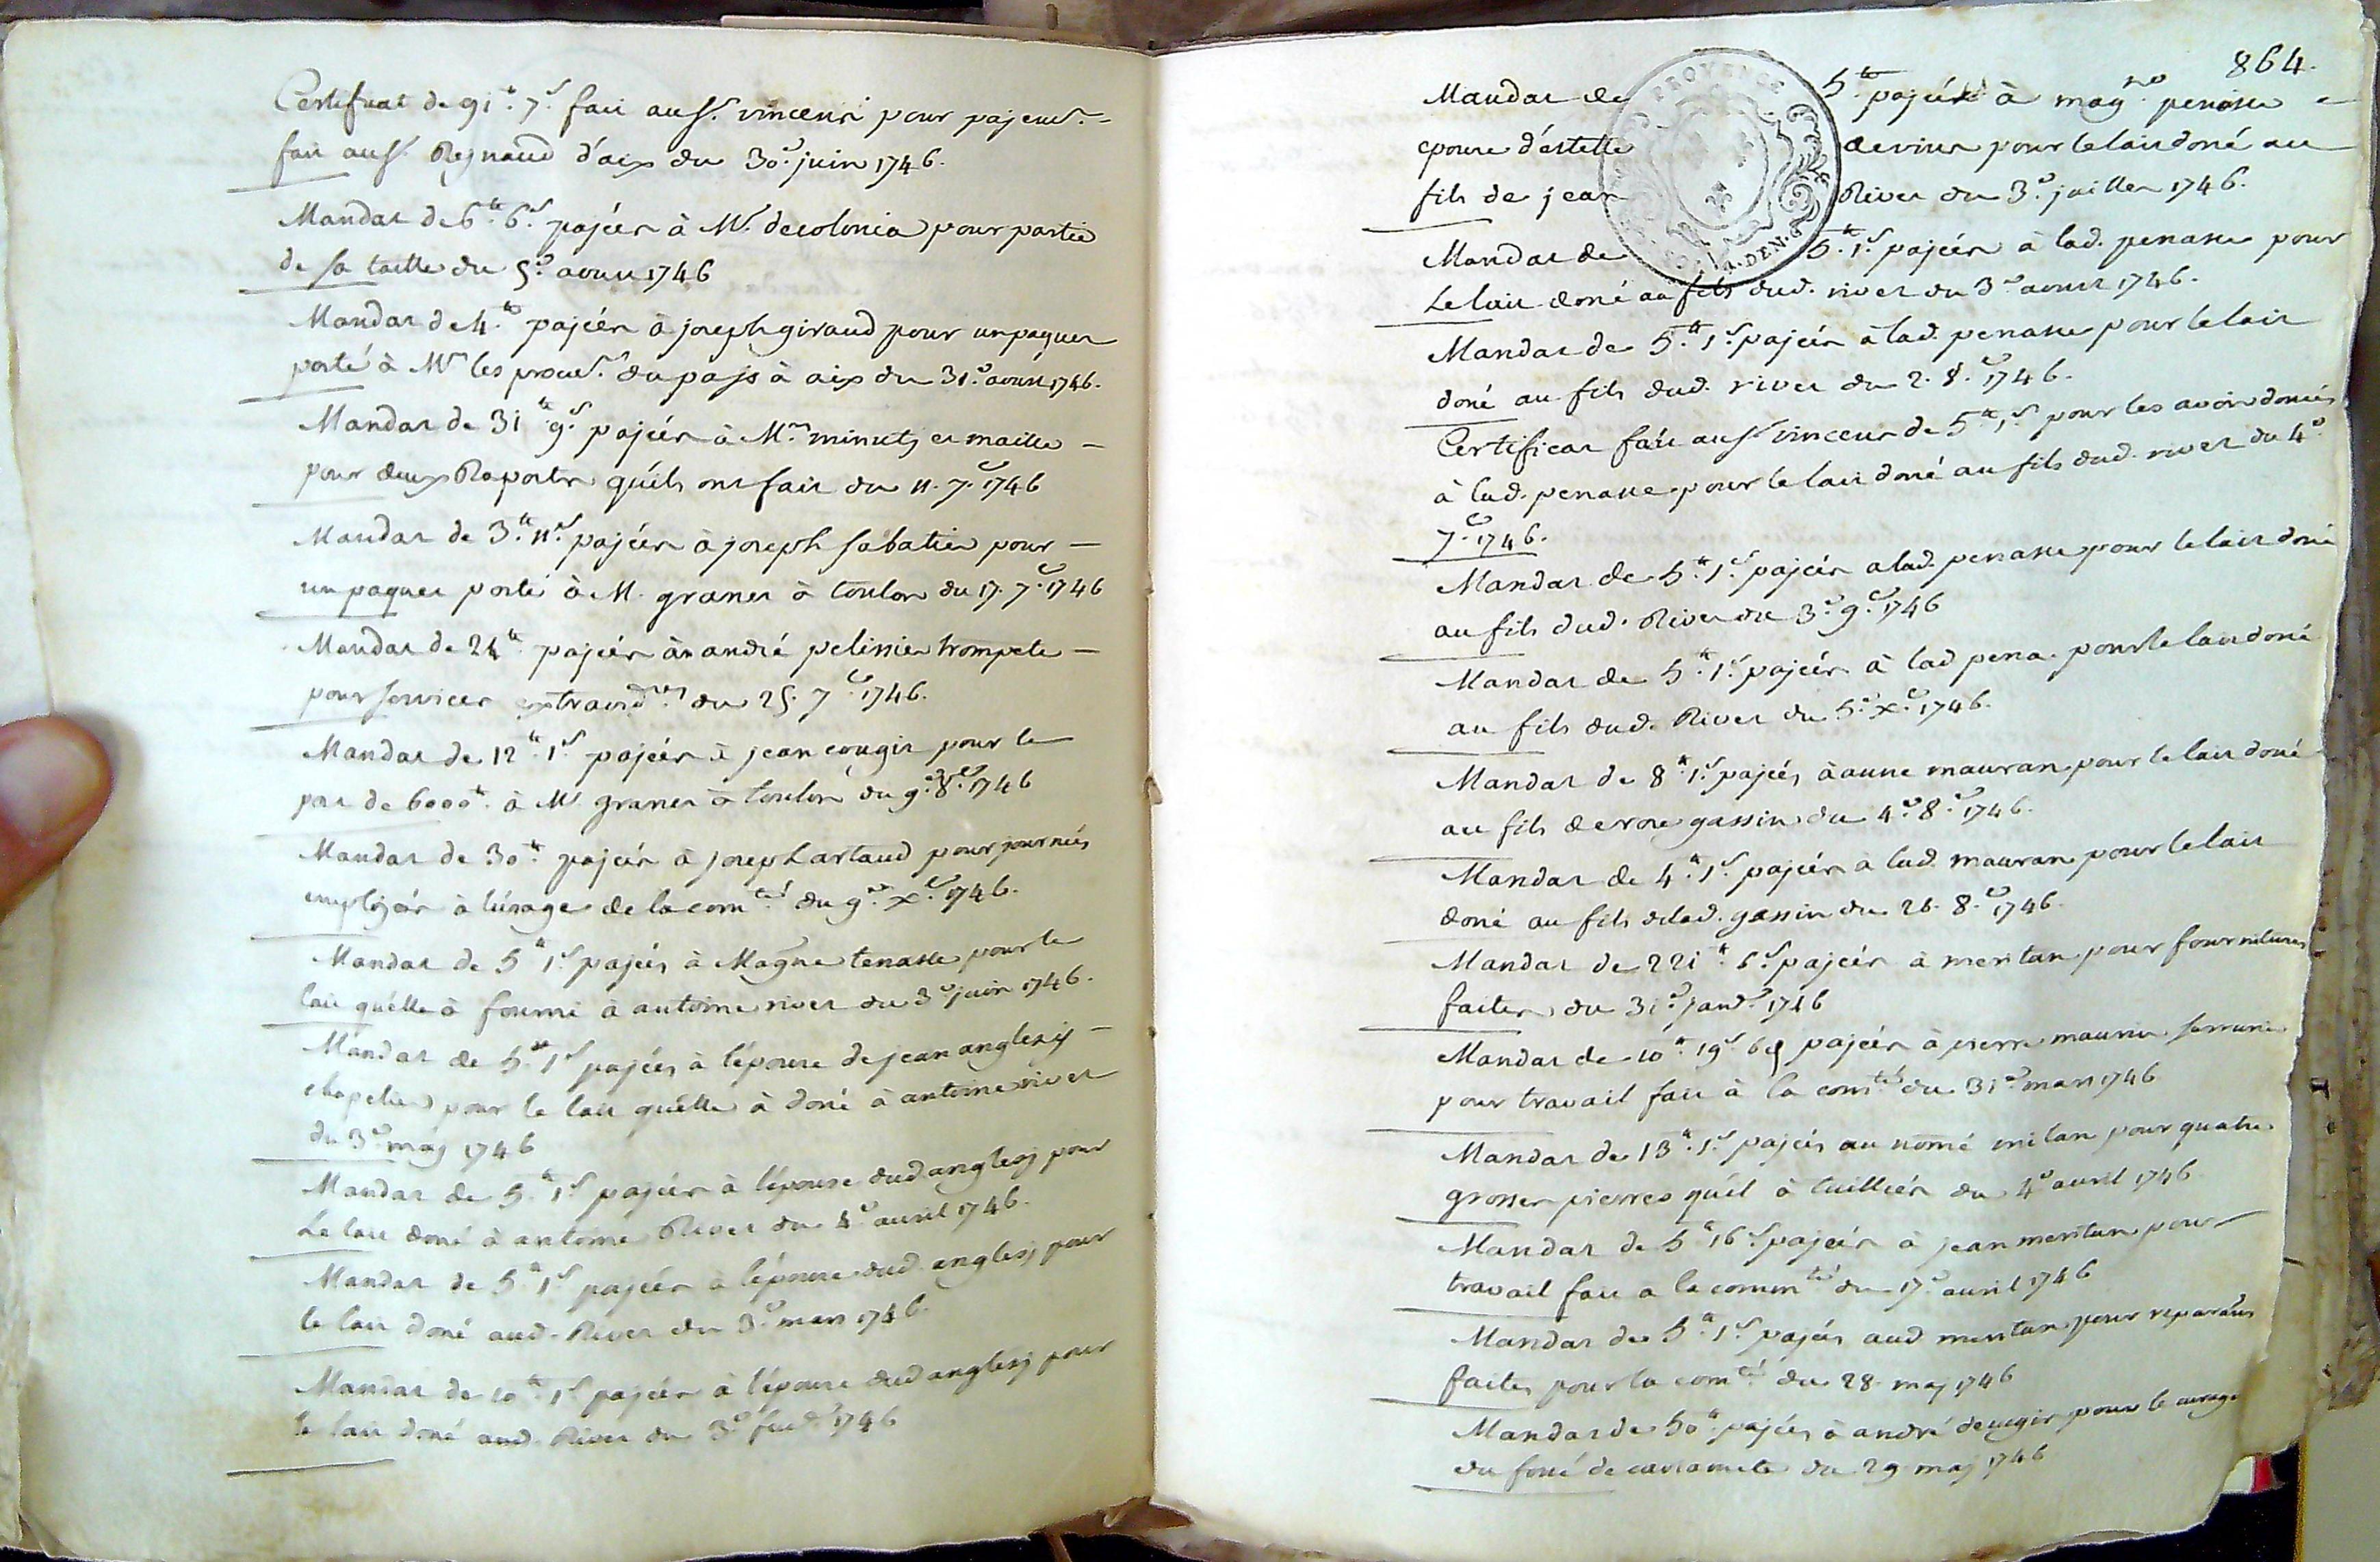 Certificat de 91.tt 7.s fait au sr. vincens pour pajemt. =
fait au sr. Reynaud d'aix du 30.e juin 1746.
Mandat de 6.tt 6.s pajées à Mr. decolonia pour partie
de sa taille du 5.e aoust 1746
Mandat de 4.tt pajées à joseph giraud pour un paquet
porté à Mrs les procurs. du pays à aix du 31.e aoust 1746.
Mandat de 31tt 9.s pajées à Mrs minuty et maille —
pour deux Raports qu'ils ont fait du 11. 7.e 1746
Mandat de 3.tt 11.s pajées à joseph sabatier pour —
un paquet porté à M. granet à toulon du 17. 7.e 1746
Mandat de 24tt pajées à andré pelissier trompete —
pour services extraord.res du 25. 7.e 1746.
Mandat de 12tt. 1.s pajées à jean cougit pour le
port de 6000tt. à Mr granet à toulon du 9.e 8.e 1746
Mandat de 30.tt pajées à joseph artaud pour journées
emplojées à l'usage de la com.té du 9.e x.e 1746.
Mandat de 5tt 1.s pajées à Magne tenasse pour le
lait qu'elle à fourni à antoine rivet du 3.e juin 1746.
Mandat de 5.tt 1s pajées à l'épouse de jean anglesy —
chapelier pour le lait qu'elle à doné à antoine rivet
du 3.e maj 1746
Mandat de 5.tt 1s pajées à l'épouse dud anglesj pour
Le lait doné à antoine Rivet du 4.e avril 1746.
Mandat de 5.tt 1s pajées à l'épouse dud. anglesj pour
le lait doné aud. Rivet du 3.e mars 1746.
Mandat de 10tt. 1s pajées à l'épouse dud anglesj pour
le lait doné aud. Rivet du 3.e fevr. 1746
864.
Mandat de 5.tt pajées à magne penasse
epouse d'estelle pour le lait doné au
fils de jean Rivet du 3.e juillet 1746.
Mandat de 5.tt 1.s pajées à lad. penasse pour
Le lait doné au fils dud. rivet du 3.e aoust 1746.
Mandat de 5.tt 1s pajées à lad. penasse pour le lait
doné au fils dud. rivet du 2. 8.e 1746.
Certificat fait au sr vincens de 5tt 1s pour les avoir donées
à lad. penasse pour le lait doné au fils dud. rivet du 4.e
7.e 1746.
Mandat de 5.tt 1.s pajées a lad. penasse pour le lait doné
au fils dud. Rivet du 3.e 9.e 1746
Mandat de 5.tt 1.s pajées à lad pena. pour le lait doné
au fils dud. Rivet du 5.e x.e 1746.
Mandat de 8tt. 1.s pajées à anne mauran pour le lait doné
au fils de rose gassin du 4.e 8.e 1746.
Mandat de 4.tt 1.s pajées à lad. mauran pour le lait
doné au fils delad. gassin du 26. 8.e 1746.
Mandat de 221tt. 6.s pajées à meritan pour fournitures
faites du 31.e janv.r 1746
Mandat de 10tt. 19s 6d pajées à pierre maurin serrurier
pour travail fait à la com.té du 31.e mars 1746
Mandat de 13tt. 1.s pajées au nomé milan pour quatre
grosses pierres qu'il à tailliées du 4.e avril 1746
Mandat de 5tt 16.s pajées à jean meritan pour
travail fait a la comm.té du 17.e avril 1746
Mandat de 5.tt 1.s pajées aud meritan pour reparaons
faites pour la com.té du 28. maj 1746
Mandat de 50tt. pajées à andré pour le curage
du fossé de du 29 maj 1746
PROVENCE